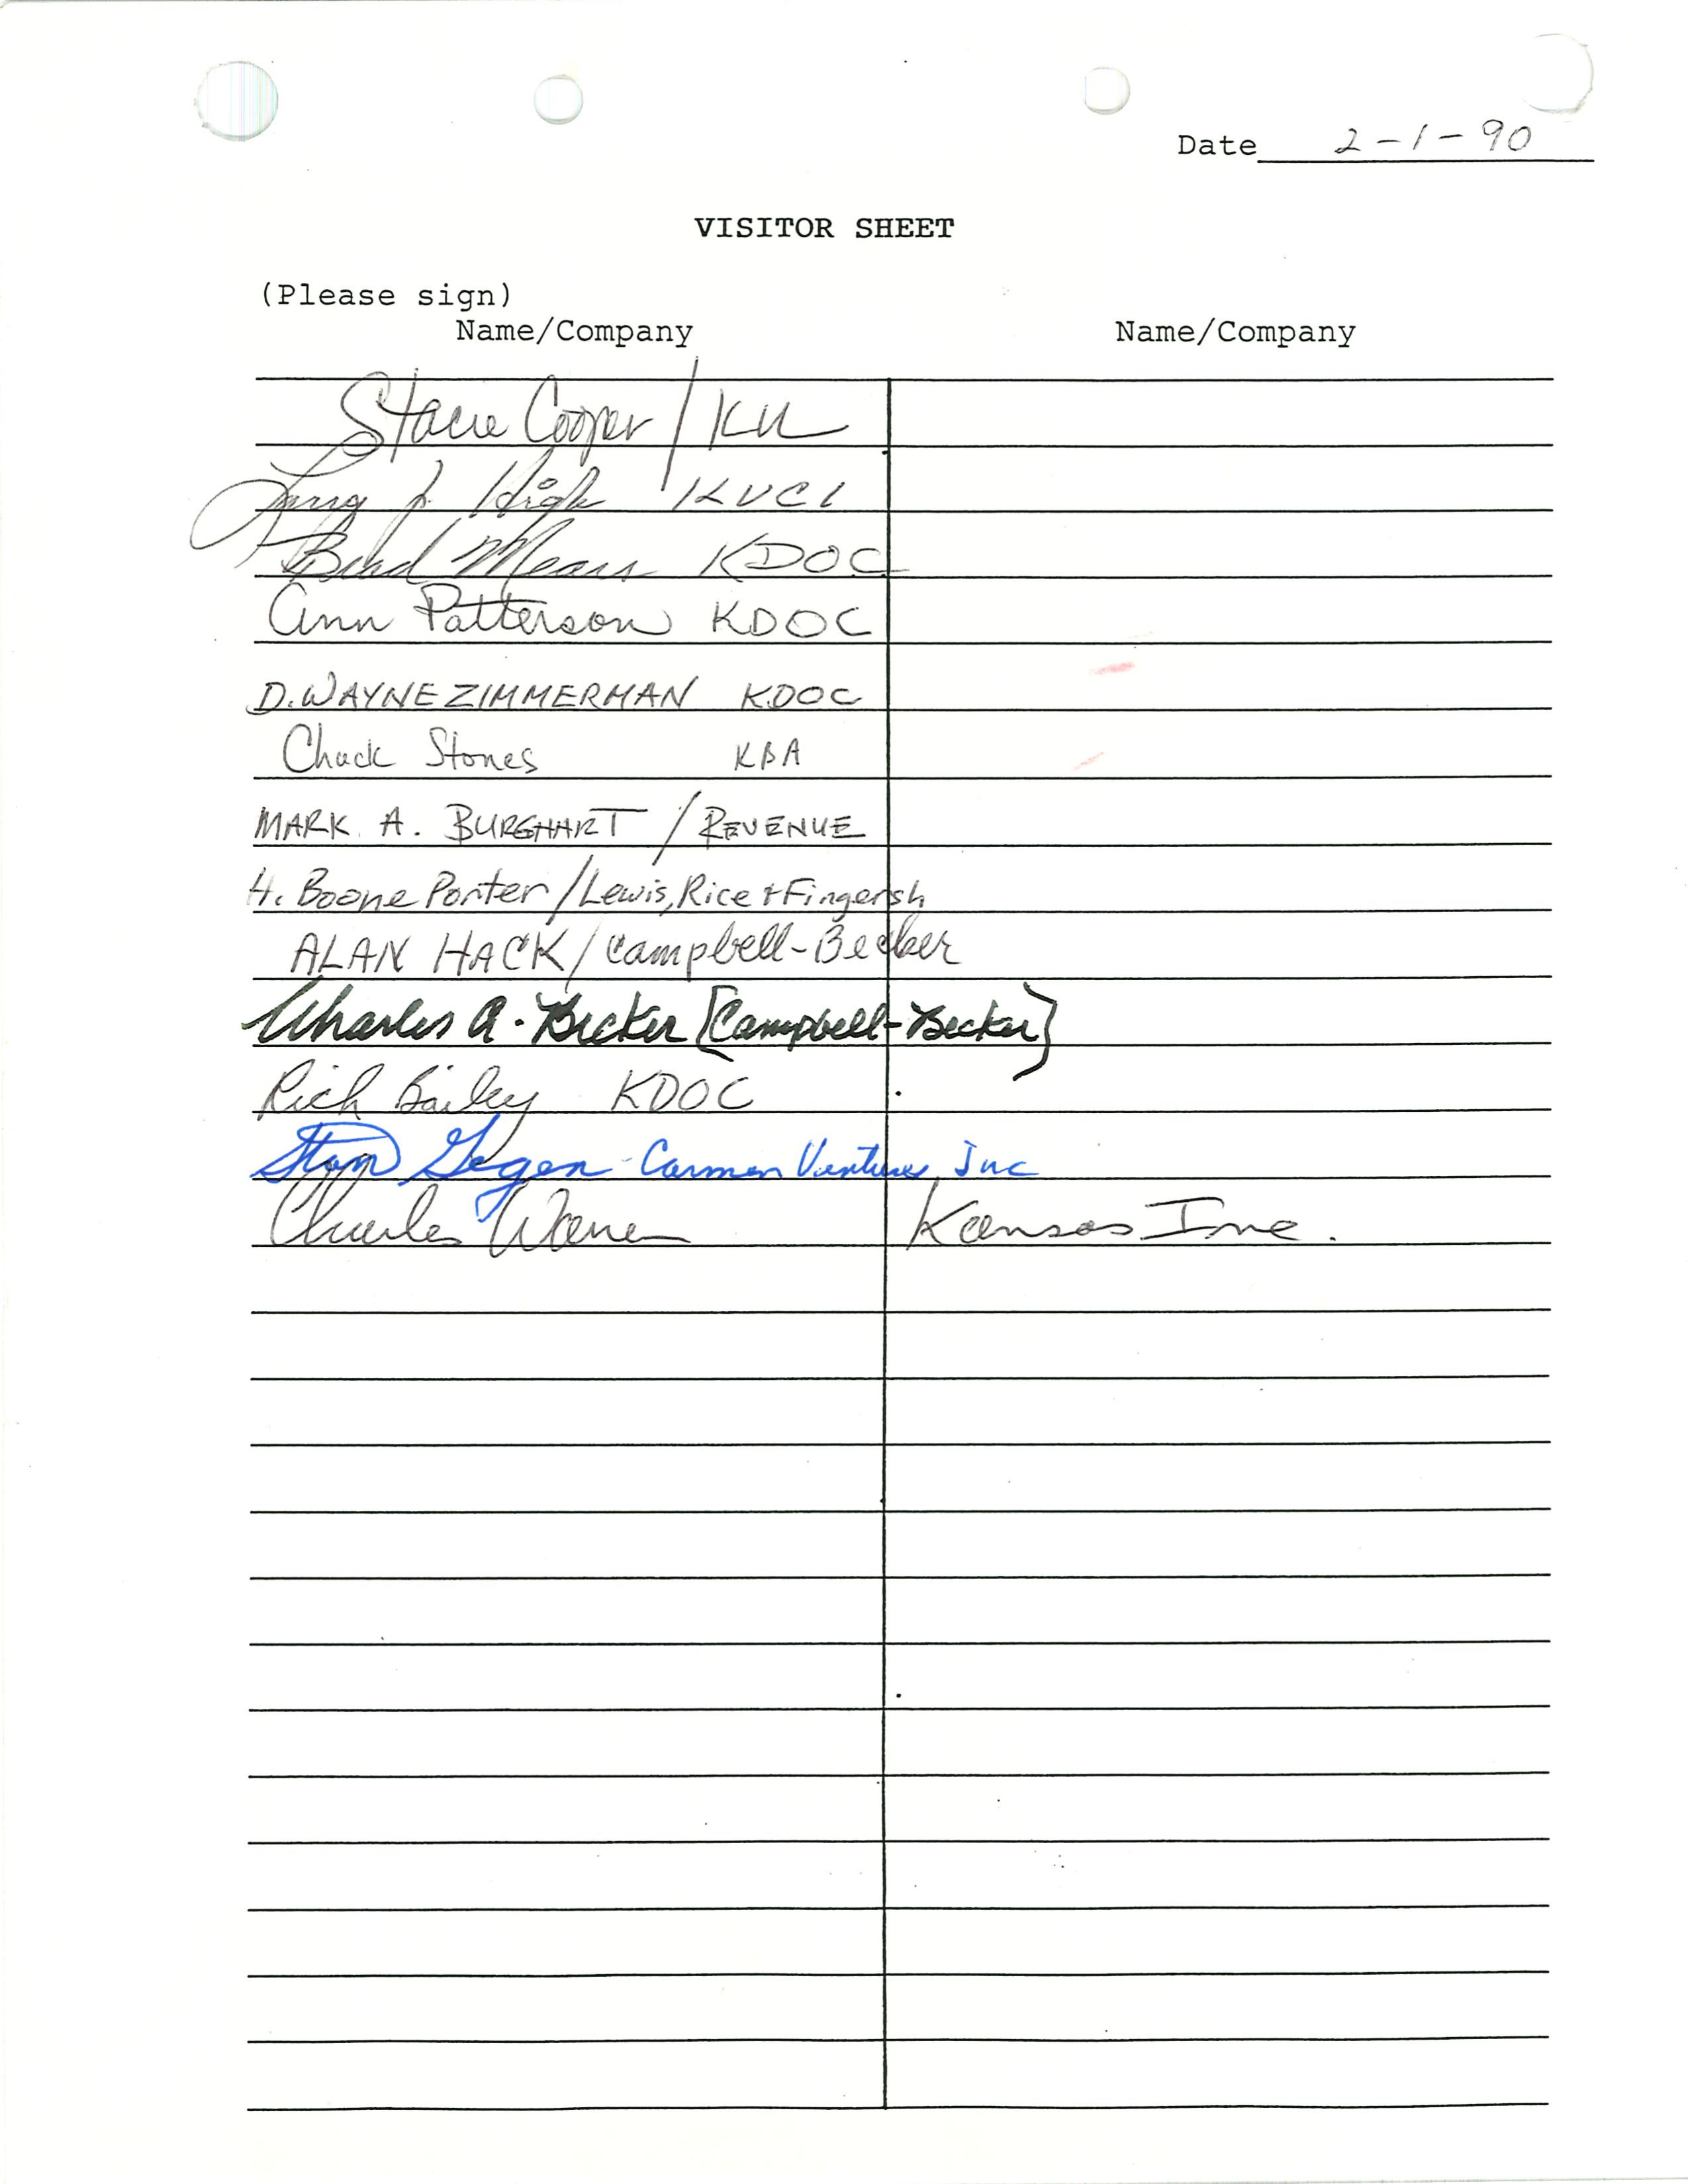 Date 2-1-90
VISITOR SHEET
(Please sign)
Name/Company Name/Company
Stacie Cooper / KU
High KVCI
Means KDOC
Ann Patterson KDOC
D. WAYNE ZIMMERMAN KDOC
Chuck Stones KBA
MARK A. BURGHART / REVENUE
H. Boone Porter / Lewis, Rice & Fingersh
ALAN HACK / Campbell-Becker
Charles A. Becker [Campbell-Becker]
Rich Bailey KDOC
Stan Gegen - Carmen Ventures, Inc
Charles Kansas Inc.